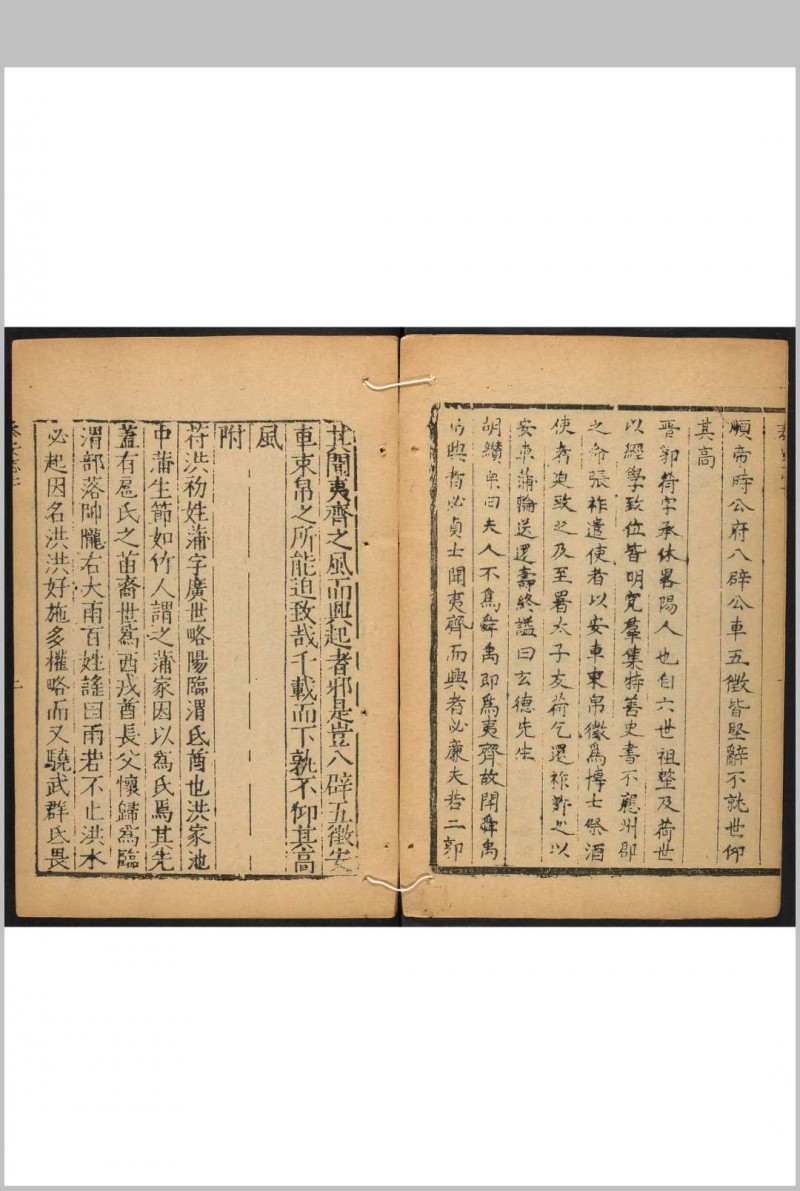 順帝時公府八辟公車五徵皆堅辭不就世仰
其高
晋郭荷字承休畧陽人也自六世祖整及荷世
以經學致位皆明究羣集特善史書不應州郡
之命張祚遣使者以安車束帛徵爲博士祭酒
使者迫致之及至署太子友荷乞還祚許之以
安車蒲輪送還壽終謚曰玄德先生
胡纘宗曰夫人不爲舜禹即爲夷齊故聞舜禹
而興者必貞士聞夷齊而興者必廉夫若二郭
其聞夷齊之風而興起者邪是豈八辟五徵安
車束帛之所能迫致哉千載而下孰不仰其高
風
附
苻洪初姓蒲字廣世略陽臨渭氐酋也洪家池
中蒲生節如竹人謂之蒲家因以爲氏焉其先
蓋有扈氏之苗裔世爲西戎酋長父懷歸爲臨
渭部落帥隴右大雨百姓謠曰雨若不止洪水
必起因名洪洪好施多權略而又驍武群氐畏